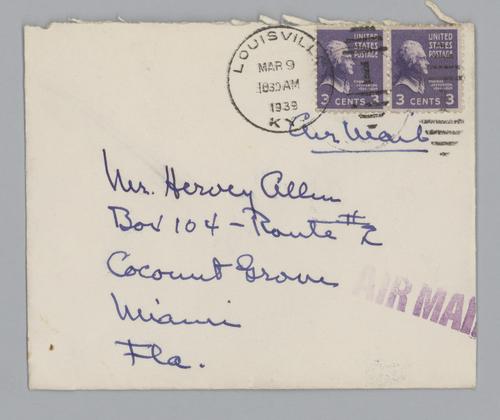 LOUISVILLE
MAR 9
1030 AM
1939
KY.
1
UNITED STATES POSTAGE
3 CENTS 3
UNITED STATES POSTAGE
3 CENTS 3
Air Mail
Mr. Hervey Allen
Box 104 - Route #2
Cocoanut Grove
Miami
Fla.
AIR MAIL